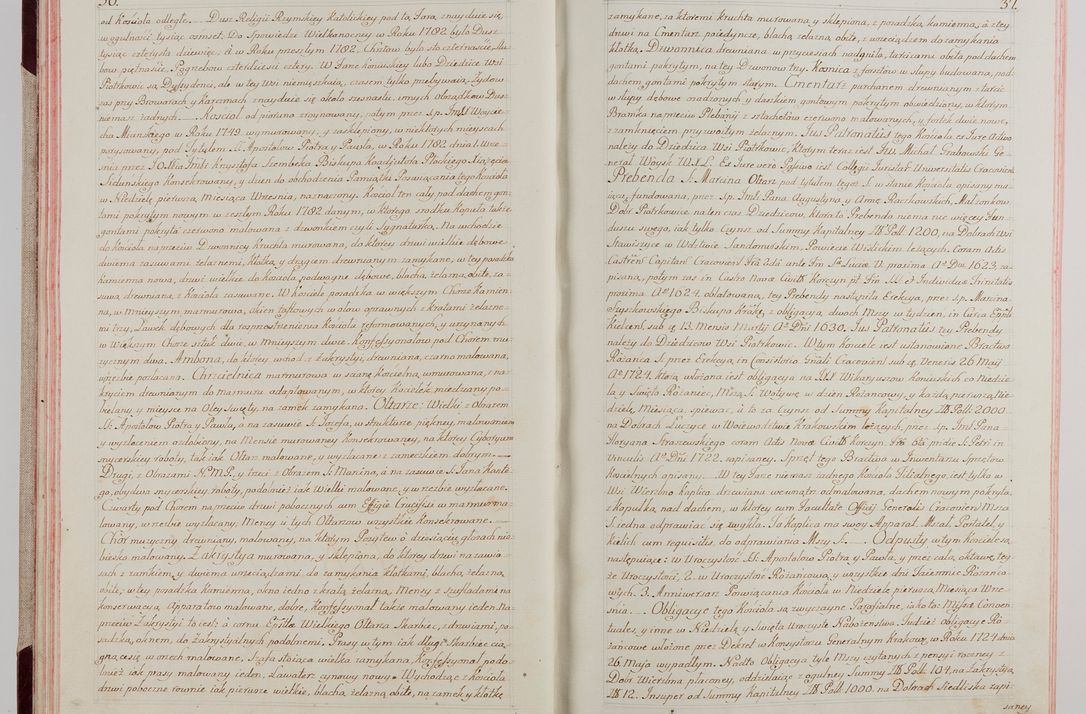 50.
od Kościoła odległe. Dusz Religii Rzymskiey Katolickiey pod tą Farą znayduie się
w ogulności tysiąc osmset. Do Spowiedzi Wielkanocney w Roku 1782 było Dusz
tysiąc czterysta dziewięć, á w Roku przeszłym 1782. Chrztow było sto czternaście, Slu-
bow piętnaście. Pogrzebow czterdzieści cztery. W Farze Koniuskiey lubo Dziedzice Wsi
Piotrkowic są Dyssydenci, ale w tey Wsi niemięszkaią, czasem tylko przebywaią, Zydow
zas przy Browarach y Karczmach znayduie się około szesnastu, innych Obrządkow Dusz
niemasz żadnych. Kościoł od piorunu zruynowany, potym przez sp. Imći X Woycie-
cha Miranskiego w Roku 1749. wymurowany, y zasklepiony, w niektorych mieyscach
porysowany, pod Tytułem SS. Apostołow Piotra y Pawła, w Roku 1782 dnia 1. Wrze-
śnia przez JO. Xcia Imći Krzysztofa Szembeka Biskupa Koadjutora Płockiego Xiążęcia
Sielunskiego Konsekrowany, y dzien do obchodzenia Pamiątki Poswiącania tego Kościoła
w Niedzielę pierwszą Miesiąca Września, naznaczony. Kościoł ten cały pod dachem gon-
tami pokrytym nowym w zeszłym Roku 1782 danym, w ktorego srodku Kopuła także
gontami pokryta czerwono malowana z dzwonkiem czyli Sygnaturką. Na wchodzie
do Kościoła naprzeciw Dzwonnicy Kruchta murowana, do ktorey drzwi wielkie dębowe
dwiema zasuwami żelaznemi, Kłotką y drągiem drewnianym zamykane, w tey posadzka
kamienna nowa, drzwi wielkie do Kościoła podwoyne dębowe, blachą żelazną obite, za-
suwą drewnianą z Kościoła zasuwane. W Kościele posadzka w większym Chorze Kamien-
na, w mnieyszym marmurowa, okien taflowych w ołow oprawnych z kratami żelazne-
mi trzy, Ławek dębowych dla rozprzestrzenienia Kościoła reformowanych, y urzynanych
w większym Chorze sztuk dwie, w mnieyszym dwie. Konfessyonałow pod Chorem mu-
zycznym dwa. Ambona, do ktorey wchod z Zakrystyi, drewniana, czarno malowana,
w rzezbie pozłacana. Chrzcielnica marmurowa w scianę Kościelną wmurowana, z na-
kryciem drewnianym do marmuru adaptowanym, w ktorey Kociołek miedziany po-
bielany y mieysce na Oley Swięty, na zamek zamykana. Ołtarze: Wielki z Obrazem
SS. Apostołow Piotra y Pawła, á na zasuwie S. Jozefa, w strukturze piękney, malowaniem
y wyzłoceniem ozdobiony, na Mensie murowaney Konsekrowaney, na ktorey Cyboryum
snycerskiey roboty, tak iak Ołtarz malowane, y wyzłacane z zameczkiem dobrym.
Drugi, z Obrazami N.M.P, y trzeci z Obrazem S. Marcina, á na zasuwie S. Jana Kante-
go, obydwa snycerskiey roboty, podobnież iak Wielki malowane, y w rzezbie wyzłacane.
Czwarty pod Chorem naprzeciw drzwi pobocznych cum Effigie Crucifixi w marmur ma-
lowany, w rzezbie wyzłacany, Mensy w tych Ołtarzow wszystkie konsekrowane.
Chor muzyczny drewniany, malowany, na ktorym Pozytew ó dziesięciu głosach nie-
biesko malowany. Zakrystya murowana, y sklepiona, do ktorey drzwi na zawia-
sach z zamkiem, y dwiema wrzeciądzami do zamykania kłotkami, blachą żelazną
obite, w tey posadzka kamienna, okno iedno z kratą żelazną, Mensy z szufladami na
konserwacyą Apparatow malowane, dobre, Konfessyonał także malowany ieden. Na-
przeciw Zakrystyi to iest á cornu Epistolae Wielkiego Ołtarza Skarbiec, z drzwiami, po-
sadzką, oknem, do Zakrystyalnych podobnemi. Prasy w tym iak długi Skarbiec cią-
gnące się w orzech malowane, szafa stoiąca wielka zamykana. Konfessyonał podo-
bnież iak prasy malowany ieden, Lawaterz cynowy nowy. Wychodząc z Kościoła
drzwi poboczne rownie iak pierwsze wielkie, blachą żelazną obite, na zamek y kłotkę
51.
zamykane, za ktoremi kruchta murowana y sklepiona, z posadzką kamienną, á z tey
drzwi na Cmentarz poiedyncze, blachą żelazną obite, z wrzeciądzem do zamykania
kłotką. Dzwonnica drewniana w przyciesiach nadgniła, tarcicami obita, pod dachem
gontami pokrytym, na tey Dzwonow trzy. Kosnica z forsztow w słupy budowana, pod
dachem gontami pokrytym starym. Cmentarz parchanem drewnianym z tarcic
w słupy dębowe osadzonych y daszkiem gontowym pokrytym obwiedziony, w ktorym
Bramka naprzeciw Plebanij z sztachetow czerwono malowanych, y fortek dwie nowe,
z zamknięciem przyzwoitym żelaznym. Jus Patronatûs tego Kościoła ex Jure Activo
należy do Dziedzica Wsi Piotrkowic, ktorym teraz iest JW. Michał Grabowski Ge-
nerał Woysk W.X.L. Ex Jure vero Passivo iest Collegii Juristar: Universitatis Cracovien:
Prebenda S. Marcina Ołtarz pod tytułem tegoż S. w stanie Kościoła opisany ma-
iąca, fundowana, przez sp. Imći Pana Augustyna y Annę Raczkowskich, Małżonkow,
Dobr Piotrkowice na ten czas Dziedzicow, Ktora to Prebenda niema nic więcey Fun-
duszu swego, iak tylko Czynsz od Summy Kapitalney Zł Poll: 1200, na Dobrach Wsi
Stawiszyce w Wdztwie Sandomirskim, Powiecie Wislickim leżących. Coram Actis
Castren: Capitan: Cracovien: Frâ 2dâ ante Fm Stæ Luciæ V. proxima Aº Dni 1623, za-
pisana, potym zaś in Castro Novæ Civitt: Korczyn pt Fm SS: et Individuæ Trinitatis
proxima Aº 1624. oblatowana, tey Prebendy nastąpiła Erekcya, przez sp. Marcina
Szyszkowskiego Biskupa Krâkgo, z obligacyą, dwoch Mszy w tydzien, in Curia Eppli
Kielcen: sub 4. 13. Mensis Martij Aº Dni 1630. Jus Patronatûs tey Prebendy
należy do Dziedzicow Wsi Piotrkowic. W tym Kościele iest ustanowione Bractwo
Różańca S. przez Erekcyą, in Consistorio Grâli Cracovien: sub 4. Veneris 26. Maij
Aº 1724. Ktorą włożona iest obligacya na XX Wikaryuszow Koniuskich co Niedzie-
lą y święto Różaniec, Mszą S. Wotywę w dzien Różańcowy, y każdą pierwszą Nie-
dzielę Miesiąca, spiewać, á to za Czynsz od Summy Kapitalney Zł Poll: 2000.
na Dobrach Łuczyce w Woiewodztwie Krakowskim leżących, przez sp. Imći Pana
Floryana Straszewskiego coram Actis Novæ Civitt: Korczyn: Frâ 6tâ pridie S. Petri in
Vinculis Aº Dni 1722. zapisaney. Sprzęt tego Bractwa w Inwentarzu Sprzętow
Kościelnych opisany. W tey Farze niemasz żadnego Kościoła Filialnego, iest tylko w
Wsi Wierzbno Kaplica drewniana wewnątrz odmalowana, dachem nowym pokryta,
z Kopułką nad dachem, w ktorey cum Facultate Officij Generalis Cracovien: Msza
S. iedna odprawiac się zwykła. Ta Kaplica ma swoy Apparat, Mszał, Portatel, y
kielich cum requisitis, do odprawienia Mszy S. Odpusty w tym Kościele są
następuiące: w Uroczystość SS. Apostołow Piotra y Pawła, y przez całą oktawę tey-
że Uroczystości, 2. w Uroczystość Różańcową y wszystkie dni Taiemnic Różanco-
wych. 3. Anniwersarz Poswiącania Kościoła w Niedzielę pierwszą Miesiąca Wrze-
śnia. Obligacye tego Kościoła są zwyczayne Parafialne, iako to: Mszæ Conven-
tuales, y inne w Niedzielę y święta Uroczyste Nabożenstwa. Tudzież obligacye Ró-
zancowe włożone przez Dekret w Konsystorzu Generalnym Krakow: w Roku 1724. dnia
26. Maja wypadłym. Nadto Obligacya tyle Mszy czytanych z pensyi roczney z
Dobr Wierzbna płaconey, oddzielaiąc z ogulney Summy Zł Poll: 104, na Zakrystyą
Zł 12. Insuper od Summy Kapitalney Zł Poll: 1000. na Dobrach Siedliska zapi-
saney